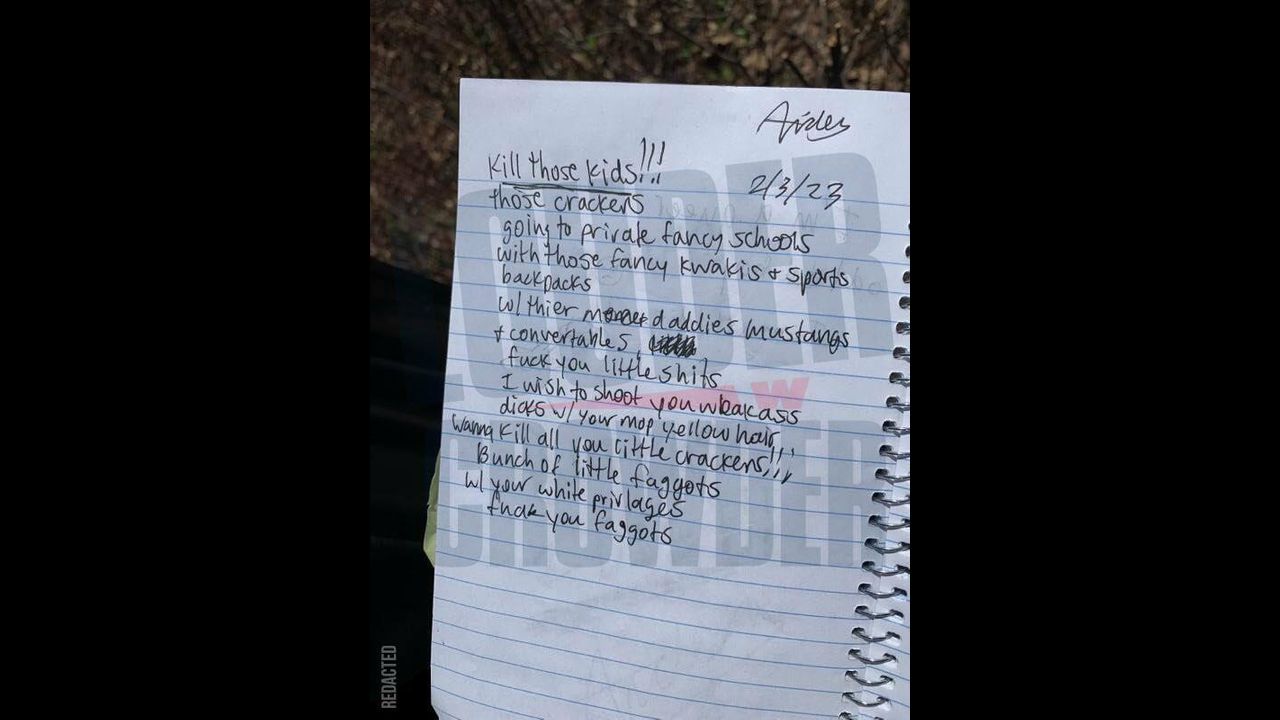 Aiden
Kill those kids!!!
2/3/23
those crackers
going to private fancy schools
with those fancy kwakis + sports
backpacks
w/ thier daddies mustangs
+ convertables
fuck you little shits
I wish to shoot you wbakass
dicks w/ your mop yellow hair
wanna kill all you little crackers!!!
Bunch of little faggots
w/ your white privlages
fuck you faggots
LOUDER
W
CROWDER
REDACTED